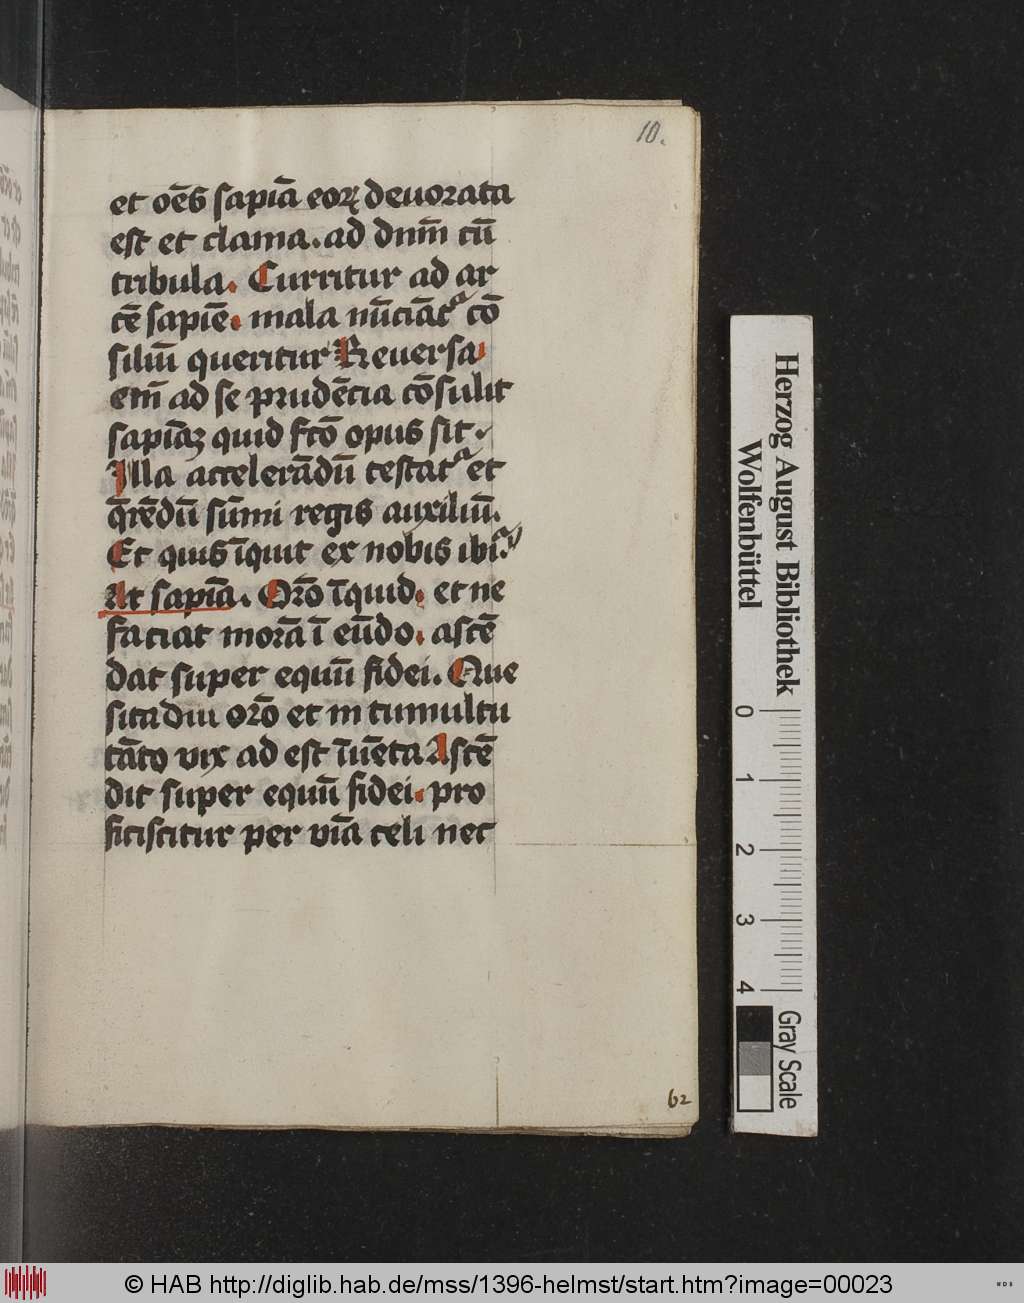 10.
et oēs sapīa eoꝝ deuorata
est et clama. ad dnm̄ cū
tribula. Curritur ad ar
cē sapīe. mala nūciātᷣ cō
siliū queritur Reuersa
em̄ ad se prudēcia cōsulit
sapīaꝫ quid fc̄o opus sit.
Illa accelerādū testatᷣ et
q̄rēdū sūmi regis auxiliū.
Et quis īquit ex nobis ibit᷑
At sapīa. Or̄o īquid. et ne
faciat morā ī eūdo. ascē
dat super equū fidei. Que
sita diu or̄o et in tumultu
tāto vix ad est īuēta Ascē
dit super equū fidei. pro
ficiscitur per vīa celi nec
62
Herzog August Bibliothek
Wolfenbüttel
0 1 2 3 4
Gray Scale
© HAB http://diglib.hab.de/mss/1396-helmst/start.htm?image=00023